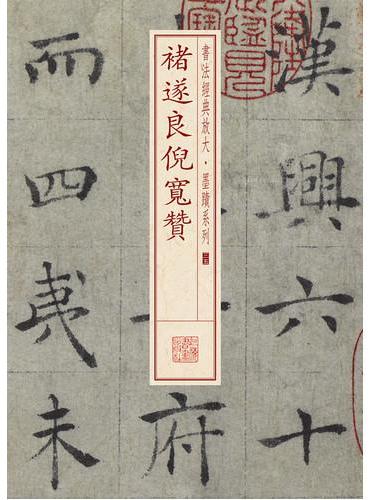 漢興六十
書法經典放大・墨蹟系列
褚遂良倪寬贊
府
而四夷未